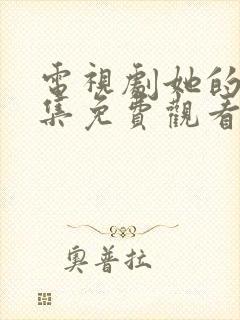 電視劇她的
集免費觀看
奧普拉